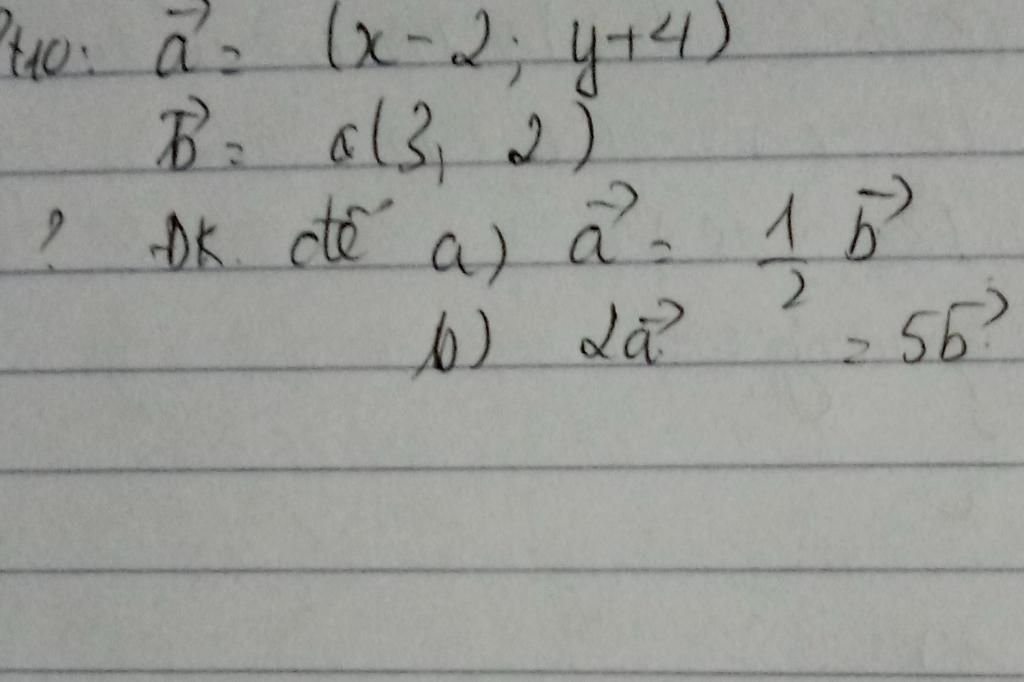 a⃗ = (x-2; y+4)
b⃗ = a(3, 2)
? ĐK để a) a⃗ = 1/2 b⃗
b) 2a⃗ = 5b⃗